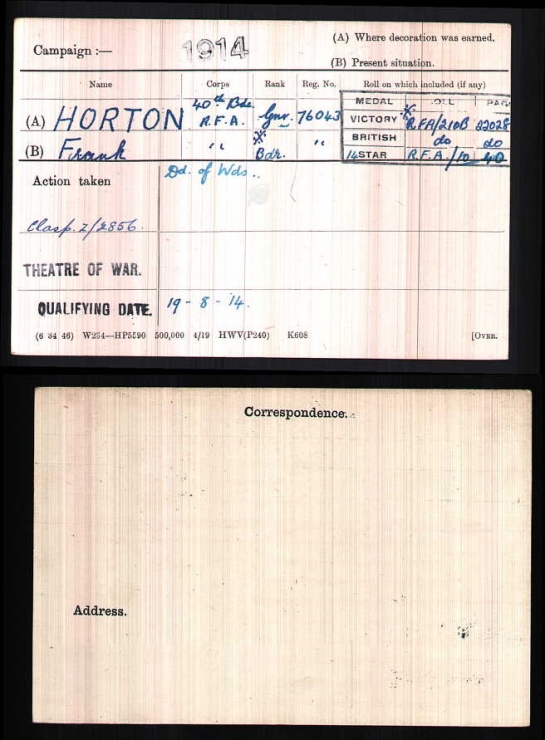 Campaign :— 1914 (A) Where decoration was earned.
(B) Present situation.
Name Corps Rank Reg. No. Roll on which included (if any)
MEDAL ROLL PAGE
(A) HORTON 40th Bde. R.F.A. Gnr. 76043
VICTORY R.F.A/210B 22028
BRITISH do do
(B) Frank " Bdr. "
14 STAR R.F.A./10 40
Action taken Dd. of Wds..
Clasp. Z/2856.
THEATRE OF WAR.
QUALIFYING DATE. 19 - 8 - 14.
(6 34 46) W234—HP5590 500,000 4/19 HWV(P240) K608 [OVER.
Correspondence.
Address.